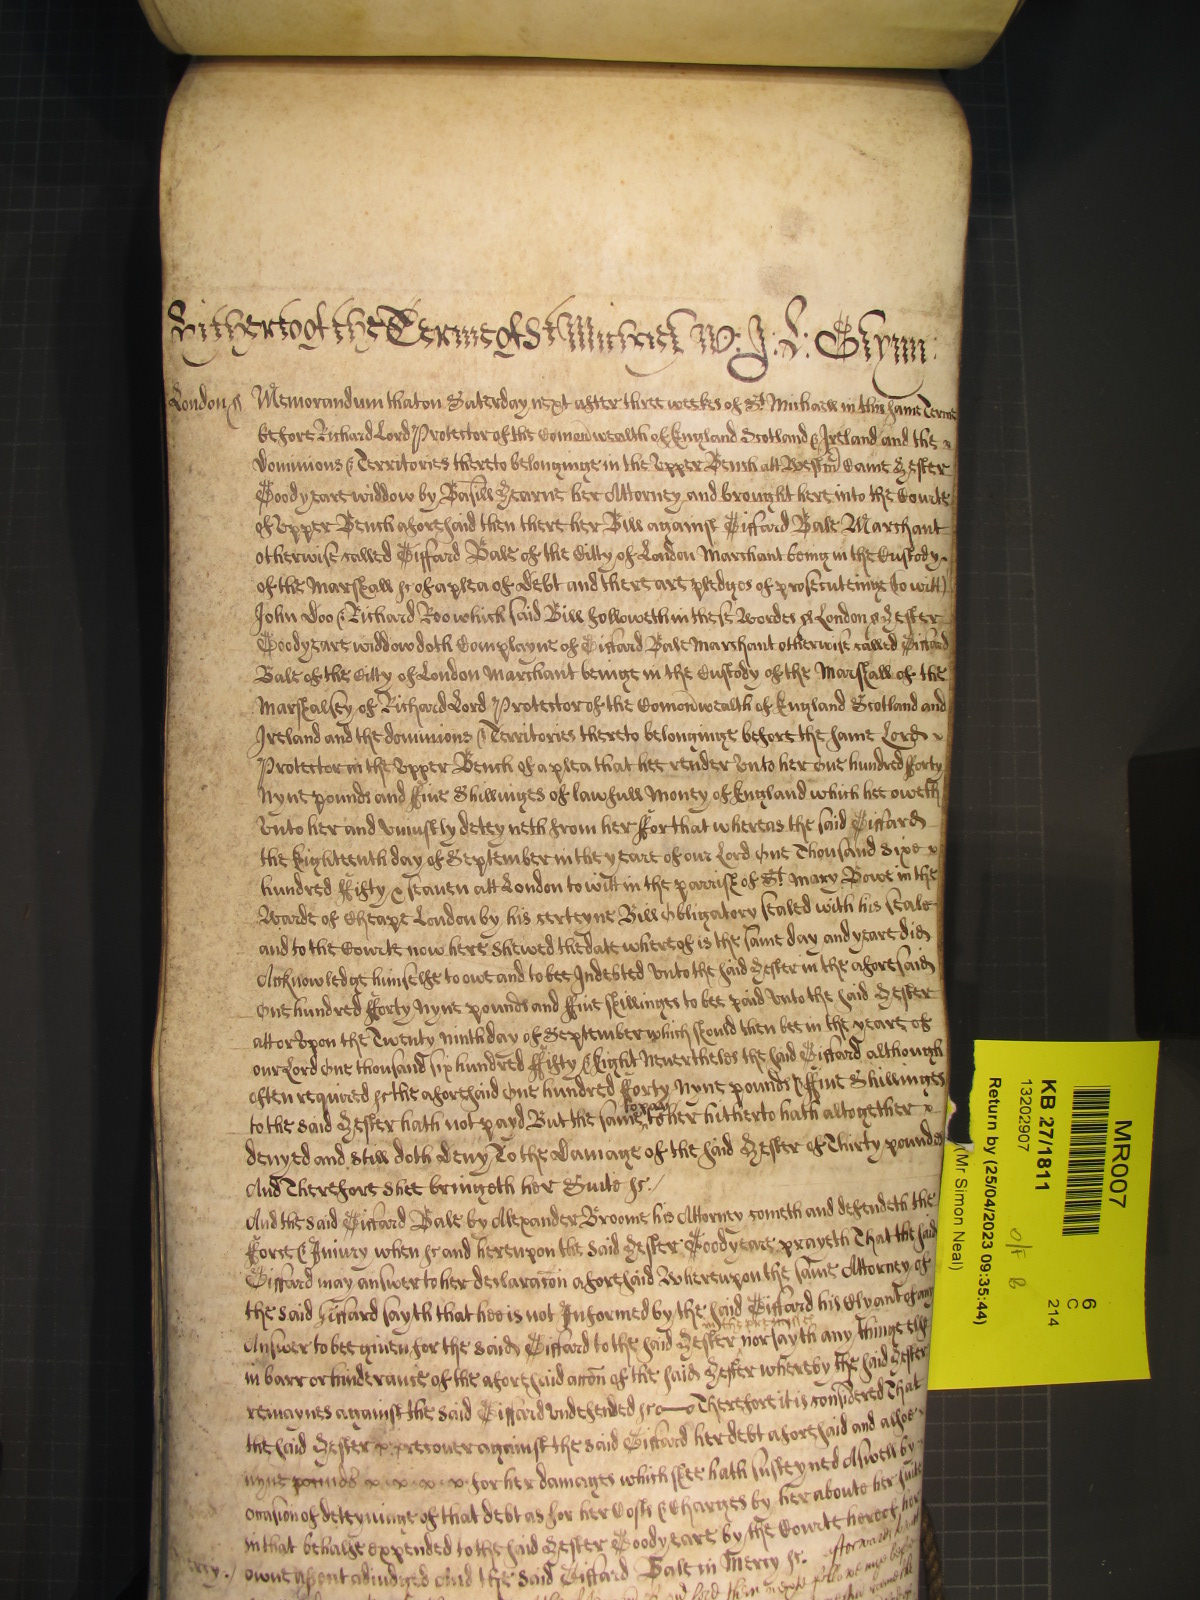 Hitherto of the Terme of St Michael W: J: J: Glynn:
London ss Memorandum that on Saterday next after three weekes of St Michaell in this same Terme
before Richard Lord Protector of the Comonwealth of England Scotland & Ireland and the
Dominions & Territories thereto belonginge in the Upper Bench att Westm Came Hester
Goodyeare widdow by Basill Hearne her Attorney and brought here into the Courte
of Upper Bench aforesaid then there her Bill against Giffard Bale Marchant
otherwise called Giffard Bale of the Citty of London Marchant being in the Custody
of the Marshall &c of a plea of Debt and there are pledges of prosecuteinge (to witt)
John Doo & Richard Roo which said Bill followeth in these Wordes ss London ss Hester
Goodyeare widdow doth Complayne of Giffard Bale Marchant otherwise called Giffard
Bale of the Citty of London Marchant beinge in the Custody of the Marshall of the
Marshalsey of Richard Lord Protector of the Comonwealth of England Scotland and
Ireland and the dominions & Territories thereto belonginge before the same Lord
Protector in the Upper Bench of a plea that hee render unto her one hundred fforty
Nyne pounds and ffive Shillinges of lawfull Money of England which hee oweth
Unto her and Uniustly deteyneth from her ffor that whereas the said Giffard
the Eighteenth day of September in the yeare of our Lord One Thousand Sixe
hundred ffifty & seaven att London to witt in the parrish of St Mary Bowe in the
Warde of Cheape London by his certeyne Bill Obligatory sealed with his seale
and to the Courte now here shewed the date whereof is the same day and yeare did
Acknowledge himselfe to owe and to bee Indebted unto the said Hester in the aforesaid
One hundred fforty Nyne pounds and ffive shillinges to bee paid unto the said Hester
att or Upon the Twenty Ninth day of September which should then bee in the yeare of
our Lord One thousand six hundred ffifty & Eight Nevertheles the said Giffard although
often required &c the aforesaid One hundred fforty Nyne pounds & ffive Shillinges
to the said Hester hath not payd But the same to pay to her hitherto hath altogether
denyed and still doth deny To the Damage of the said Hester of Thirty pounds
And Therefore shee bringeth her Suite &c./
And the said Giffard Bale by Alexander Broome his Attorney cometh and defendeth the
fforce & Iniury when &c and hereupon the said Hester Goodyeare prayeth That the said
Giffard may answer to her declaracon aforesaid Whereupon the same Attorney of
the said Giffard sayth that hee is not Informed by the said Giffard his Clyant of any
Answer to bee given for the said Giffard to the said Hester in the premisses nor sayth any thinge else
in barr or hinderance of the aforesaid accon of the said Hester whereby the said Hester
remaynes against the said Giffard Undefended &c Therefore it is considered That
the said Hester recover against the said Giffard her debt aforesaid and alsoe
nyne pounds for her damages which shee hath susteyned Aswell by
occasion of deteyninge of that debt as for her Costs & Charges by her about her suite
in that behalfe expended to the said Hester Goodyeare by the Courte hereof her
owne assent adiudged And the said Giffard Bale in Mercy &c. afterwards
MR007
KB 27/1811
13202907
Return by (25/04/2023 09:35:44)
(Mr Simon Neal)
6
C
214
O/F